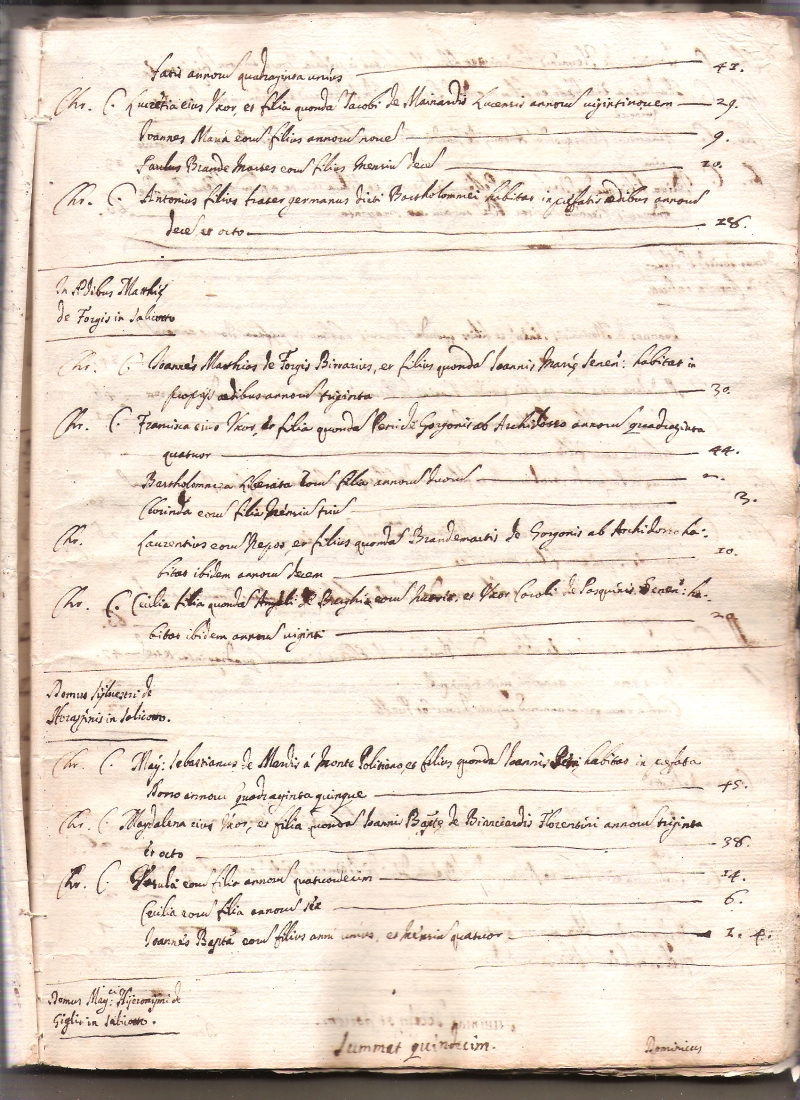 fatis annoru quadraginta unius 41.
Chr. C. Lucretia eius Uxor, et filia quonda Jacobi de Mainardis Lucensis annoru vigintinovem 29.
Joannes Maria eoru filius annoru nove 9.
Paulus Brande Martes eoru filius Mensiu dece 10.
Chr. C. Antonius filius frater germanus dicti Bartholommei habitas in pfatis ædibus annoru
dece et octo 18.
In Ædibus Matthię
de Forgis in Salicotto
Chr. C. Joannes Matthias de Forgis Birrarius, et filius quonda Joannis Marię Senen: habitas in
proprijs ædibus annoru triginta 30.
Chr. C. Francisca eius Uxor, et filia quonda Petri de Gorgonis ab Archidosso annoru quadraginta
quatuor 44.
Bartholommea Liberata eoru filia annoru duoru 2.
Clorinda eoru filia Mensiu triu 3.
Chr. Laurentius eoru Nepos, et filius quonda Brandemartis de Gorgonis ab Archidosso ha:
bitas ibidem annoru decem 10.
Chr. C. Cecilia filia quonda Angeli de eoru et Uxor Caroli de Pasquinis Senen: ha:
bitas ibidem annoru viginti 20
Domus Sylvestri de
in Salicotto.
Chr. C. Mag: Sebastianus de à Monte Politiano, et filius quonda Joannis Petri habitas in pfata
Domo annoru quadraginta quinque 45.
Chr. C. Magdalena eius Uxor, et filia quonda Joannis Bapte de Bianciardis Florentini annoru triginta
et octo 38.
Chr. C. Ursula eoru filia annoru quatuordecim 14.
Cecilia eoru filia annoru sex 6.
Joannes Bapta eoru filius anni unius, et Mensiu quatuor 1. 4.
Domus Mag:ci Hijeronijmi de
Giglis in Salicotto.
Summat quindecim.
Dominicus